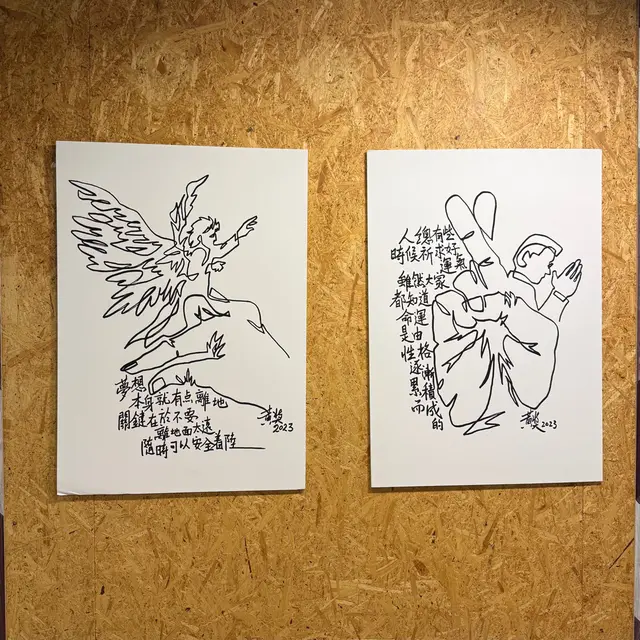 夢想
本身就有点離地
關鍵在於不要
離地面太遠
隨時可以安全着陸
2023
人總有些
時候祈求好
運氣
雖然大家
都知道
命運
是由
性格
逐漸
累積
而成
的
2023